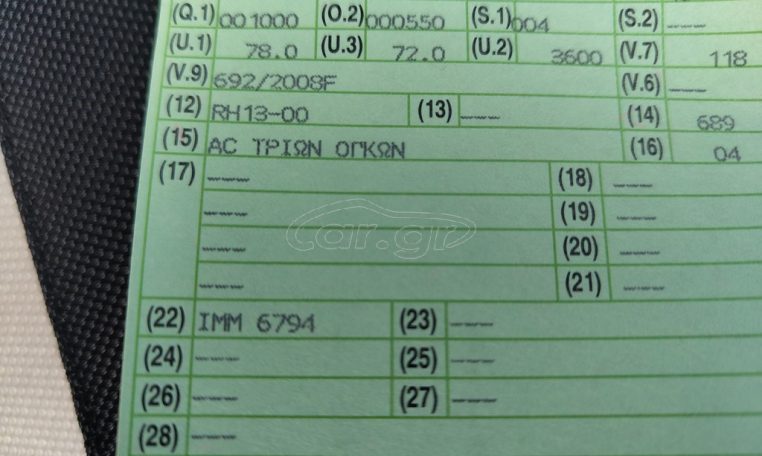 (Q.1) 001000 (O.2) 000550 (S.1) 004 (S.2) ---
(U.1) 78.0 (U.3) 72.0 (U.2) 3600 (V.7) 118
(V.9) 692/2008F (V.6) ---
(12) RH13-00 (13) --- (14) 689
(15) AC ΤΡΙΩΝ ΟΓΚΩΝ (16) 04
(17) --- (18) ---
--- (19) ---
--- (20) ---
--- (21) ---
car.gr
(22) IMM 6794 (23) ---
(24) --- (25) ---
(26) --- (27) ---
(28) ---